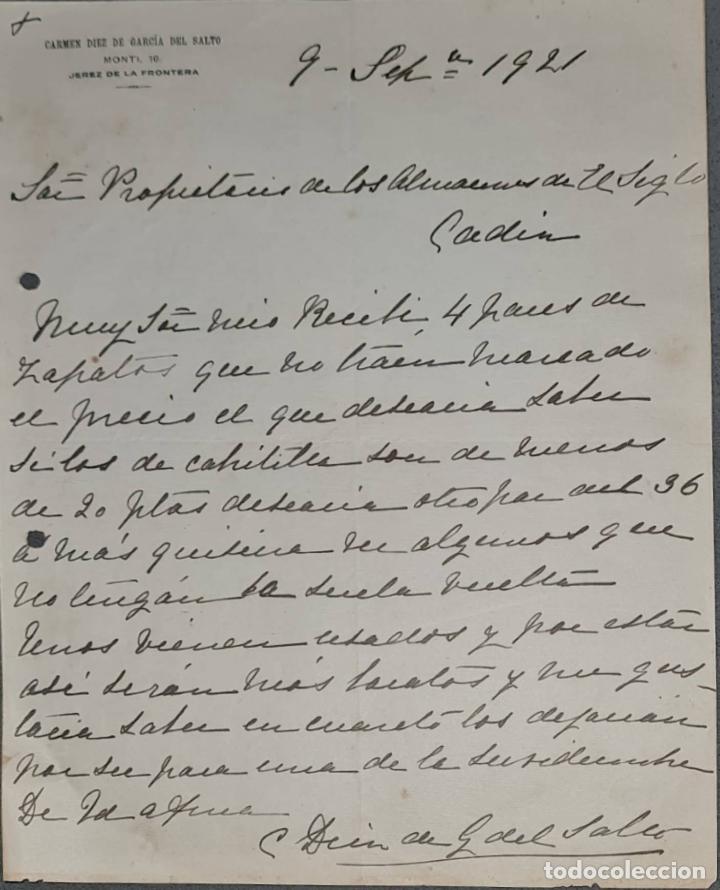 CARMEN DIEZ DE GARCÍA DEL SALTO
MONTI, 10.
JEREZ DE LA FRONTERA
9 - Sepre 1921
Sor Propietario de los Almacenes de El Siglo
Cadiz
Muy Sor mio Recibi 4 pares de
zapatos que no traén marcado
el precio el que desearia saber
si los de cabritilla son de menos
de 20 ptas desearia otro par del 36
a más quisiera ver algunos que
no tengán la suela vuelta
Unos vienen usados y por están
asi serán más baratos y me gus-
taria saber en cuanto los dejarian
por ser para una de la servidumbre
De Vd atma
C Diez de G del Salto
todocoleccion